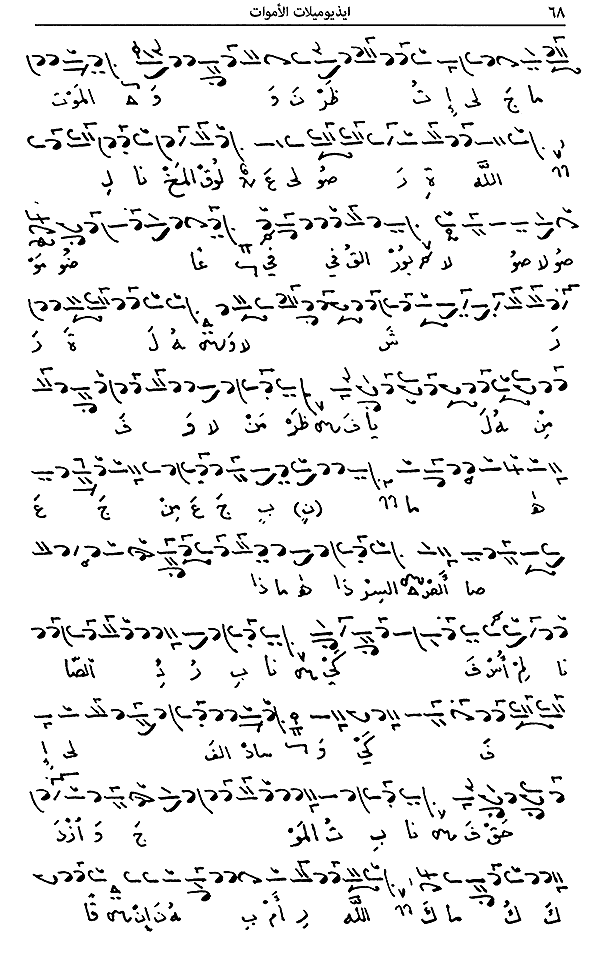 ٦٨ ايذيوميلات الأموات
ما جَ لى إِ تُ ظَرْ نَ وَ وَ المَوْت
الله ةِ رَ صُو لى عَ لُوقْ المَخْ نا لِ
صُو لا صُو لا بُورْ القُ في في عا ضُو مَوْ
رَ شَ لا وَ هُ لَ ةَ رَ
مِنْ هُ لَ يا فَ ظَرْ مَنْ لا وَ فَ
هٰ ما (نٍ) بٍ جَ عَ مِنْ جَ عَ
صا السِرْ ذا هٰ ما ذا
نا لِمْ أُسْ فَ كَيْ نا بِ رُ ئِ الصا
فَ كَيْ وَ سادْ الفَ لى إِ
حَقْ نا بِ تُ المَوْ جَ وَ ازْدَ
كَ كُ ما كَ الله رِ أَمْ بِ هُ نَ إِنْ قا